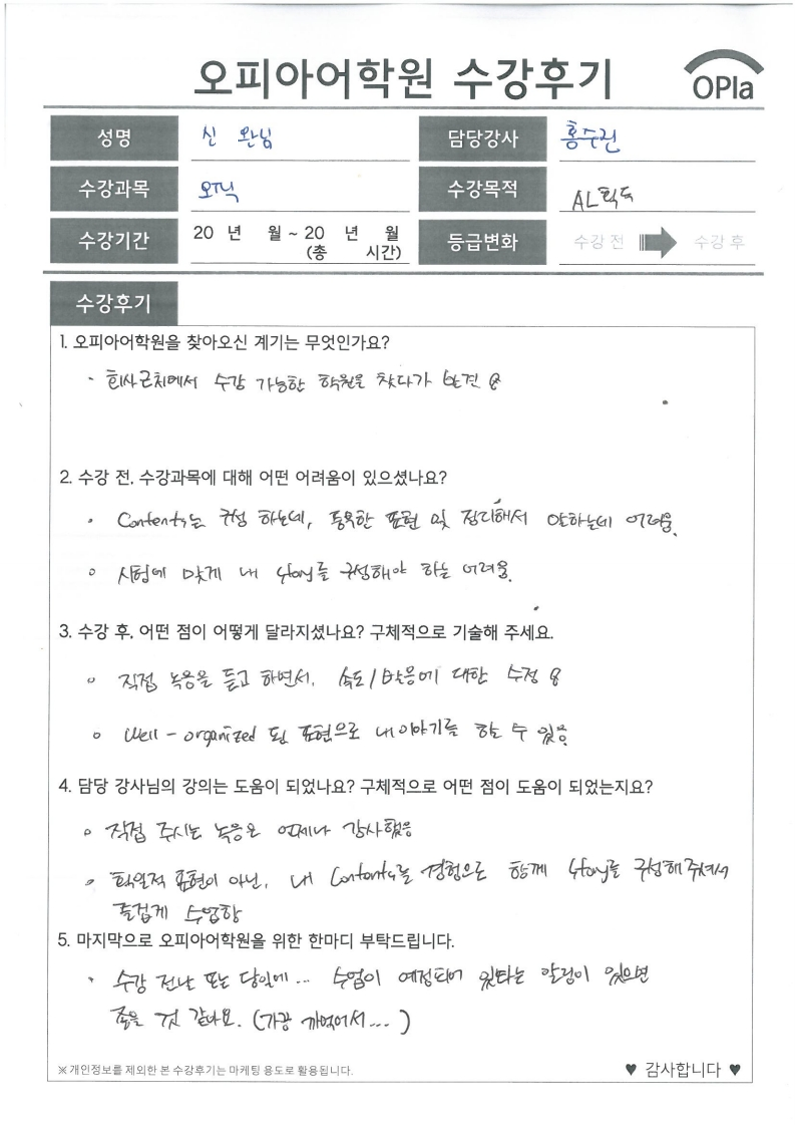 오피아어학원 수강후기
OPIa
성명 신 완님 담당강사 홍수진
수강과목 오픽 수강목적 AL획득
수강기간 20 년 월 ~ 20 년 월 (총 시간) 등급변화 수강 전 수강 후
수강후기
1. 오피아어학원을 찾아오신 계기는 무엇인가요?
· 회사근처에서 수강 가능한 학원을 찾다가 발견
2. 수강 전. 수강과목에 대해 어떤 어려움이 있으셨나요?
· Contents는 구성 하는데, 표현 및 정리해서 말하는데 어려움.
◦ 시험에 맞게 내 story를 구성해야 하는 어려움.
3. 수강 후. 어떤 점이 어떻게 달라지셨나요? 구체적으로 기술해 주세요.
◦ 직접 녹음을 듣고 하면서. 속도/발음에 대한 수정
◦ Well-organized 된 표현으로 내 이야기를 할 수 있음.
4. 담당 강사님의 강의는 도움이 되었나요? 구체적으로 어떤 점이 도움이 되었는지요?
◦ 직접 주시는 녹음은 언제나 감사했음
◦ 획일적 표현이 아닌, 내 Contents를 경험으로 함께 story를 구성해주셔서
즐겁게 수업함
5. 마지막으로 오피아어학원을 위한 한마디 부탁드립니다.
· 수강 전날 또는 당일에... 수업이 예정되어 있다는 알림이 있으면
좋을 것 같아요. (가끔 까먹어서...)
※ 개인정보를 제외한 본 수강후기는 마케팅 용도로 활용됩니다.
♥ 감사합니다 ♥